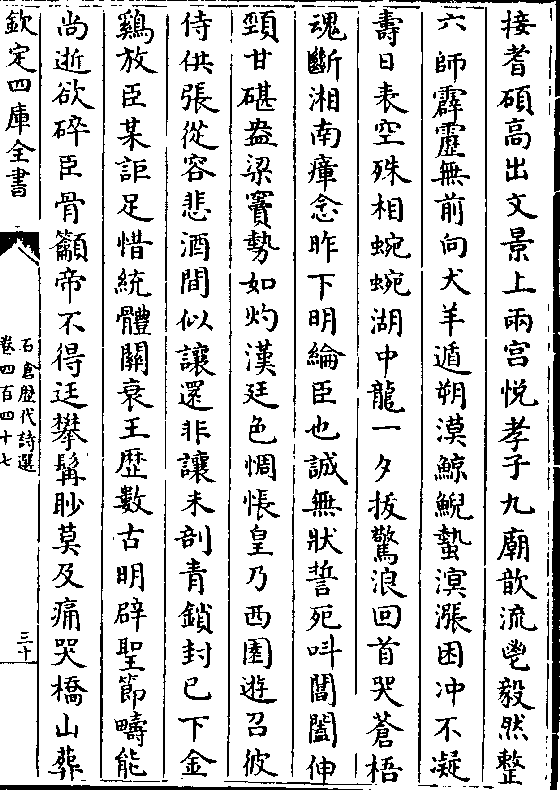 接耆碩高出文景上兩宮悅孝子九廟歆流鬯毅然整
六師霹靂無前向犬羊遁朔漠鯨鯢蟄溟漲困冲不凝
壽日表空殊相蜿蜿湖中龍一夕拔驚浪回首哭蒼梧
魂斷湘南瘴念昨下明綸臣也誠無狀誓死呌閶闔伸
頸甘碪盎梁竇勢如灼漢廷色惆悵皇乃西園遊召彼
侍供張從容悲酒間似讓還非讓未剖青鎖封已下金
鷄放臣某詎足惜統體關衰王歴數古明辟聖節疇能
尚逝欲碎臣骨籲帝不得廷攀髯眇莫及痛哭橋山葬
欽定四庫全書
石倉歴代詩選
卷四百四十七
三十